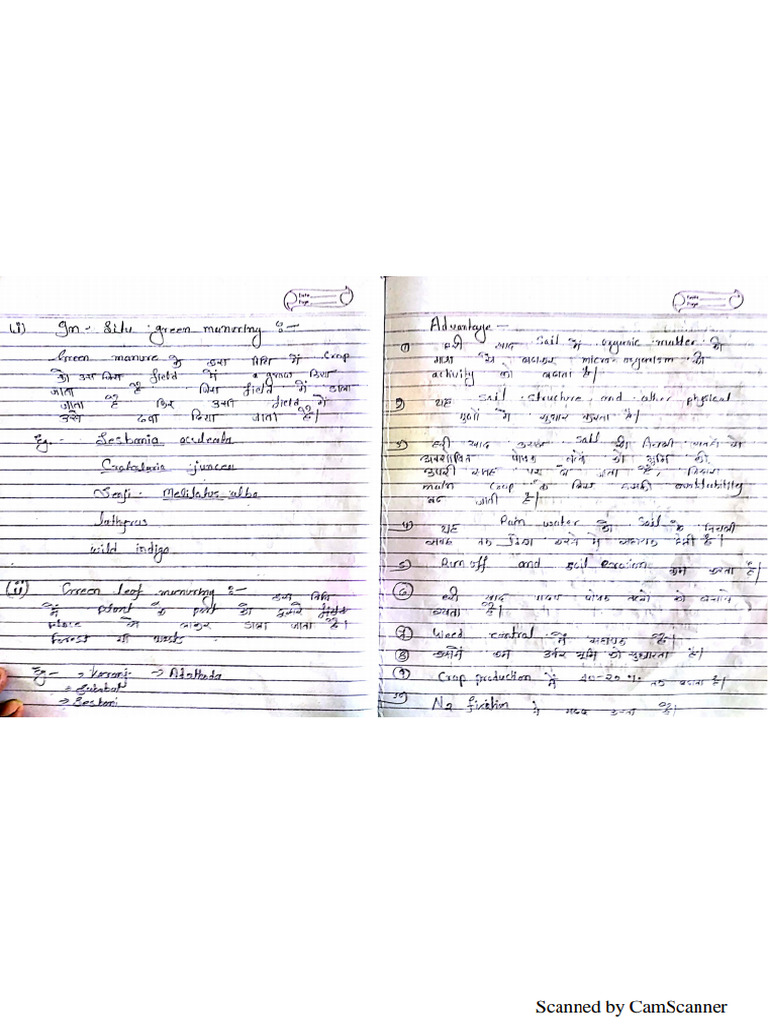 (i) In-Situ green manuring :-
Green manure के इस विधि में Crop
को उस जिस field में grow किया
जाता है जिस field में डाला
जाता है फिर उसी field में
उसे दबा दिया जाता है।
Eg:- Sesbania aculeata
Crotalaria juncea
Senji - Melilotus alba
lathyrus
wild indigo
(ii) Green leaf manuring :- इस विधि
में plant के part को दूसरे field
place से लाकर डाला जाता है।
forest या wests
Eg:- → Karanj → Adathoda
→ Subabul
→ Sesbani
Advantage -
① हरी खाद soil में organic matter की
मात्रा को बढाकर micro-organism की
activity को बढाता है।
2) यह soil structure and other physical
गुणों में सुधार करता है।
3) हरी खाद soil की निचली सतह से
अवशोषित पोषक तत्वों को भूमि की
ऊपरी सतह पर जाता है, जिससे
main crop के लिए उसकी availability
बढ जाती है।
4) यह Rain water को soil के निचली
सतह तक करने में सहायता देती है।
5) Run off and soil erosion कम करता है।
⑥ हरी खाद पादप पोषक तत्वों को बचाने
है।
⑦ Weed control में सहायक है।
⑧ कम उर्वर भूमि को सुधारता है।
⑨ Crop production में 10-20 % तक बढाता है।
10) N2 fixation में मदद करता है।
Scanned by CamScanner